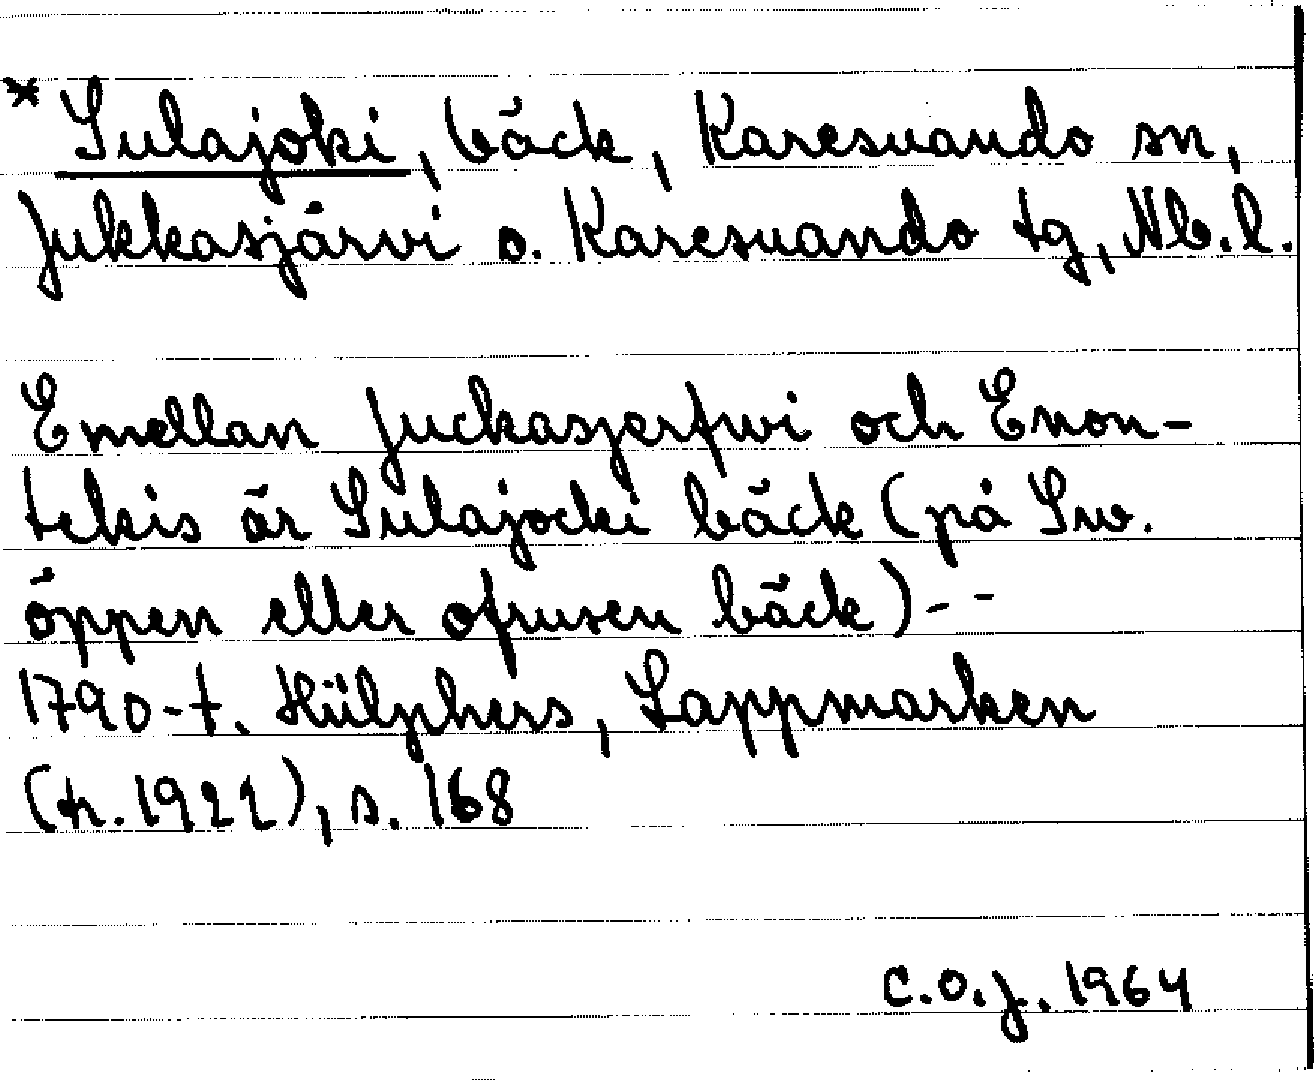 * Sulajoki, bäck, Karesuando sn,
Jukkasjärvi o. Karesuando tg, Nb.l.
Emellan Juckasjerfwi och Enon-
tekis är Sulajocki bäck (på Sw.
öppen eller ofrusen bäck) - -
1790-t. Hülphers, Lappmarken
(tr. 1922), s. 168
C.O.J. 1964